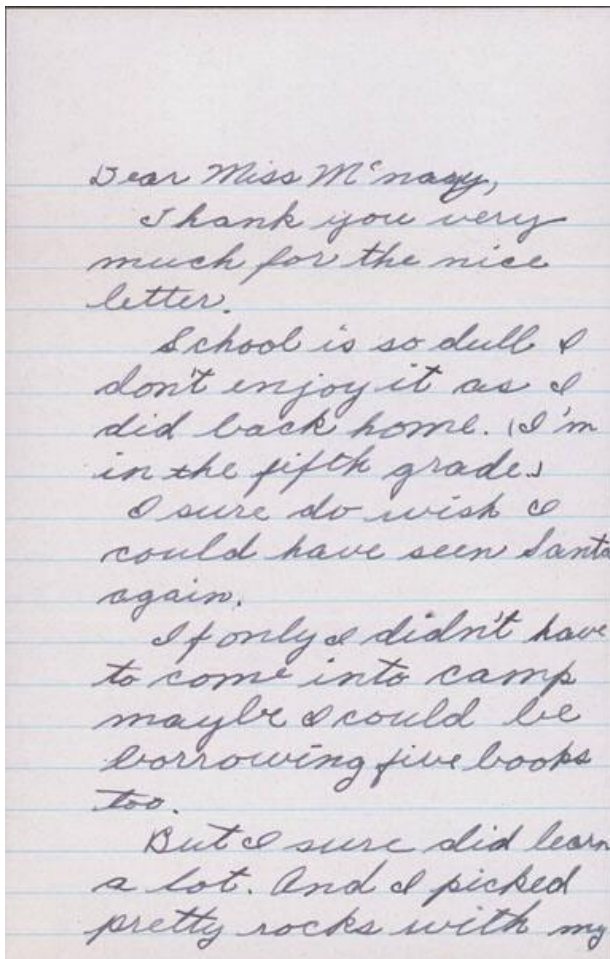 Dear Miss McNagy,
Thank you very
much for the nice
letter.
School is so dull I
don't enjoy it as I
did back home. (I'm
in the fifth grade.)
I sure do wish I
could have seen Santa
again.
If only I didn't have
to come into camp
maybe I could be
borrowing five books
too.
But I sure did learn
a lot. And I picked
pretty rocks with my